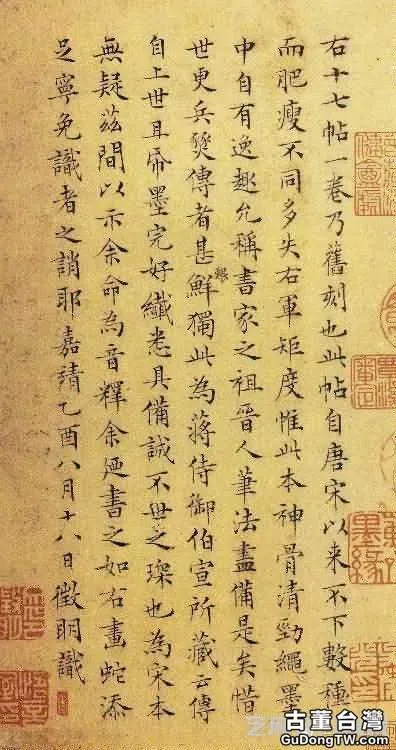 右十七帖一卷乃舊刻也此帖自唐宋以来不下數種
而肥瘦不同多失右軍矩度惟此本神骨清勁繩墨
中自有逸趣允稱書家之祖晉人筆法盡備是矣惜
世更兵燹傳者甚鮮獨此為蔣侍御伯宣所藏云傳
自上世且帋墨完好纖悉具備誠不世之琛也為宋本
無疑茲間以示余命為音釋余廼書之如右畫蛇添
足寧免識者之誚耶嘉靖乙酉八月十八日徵明識
墨緣
古董台灣
www.GuDongTW.com